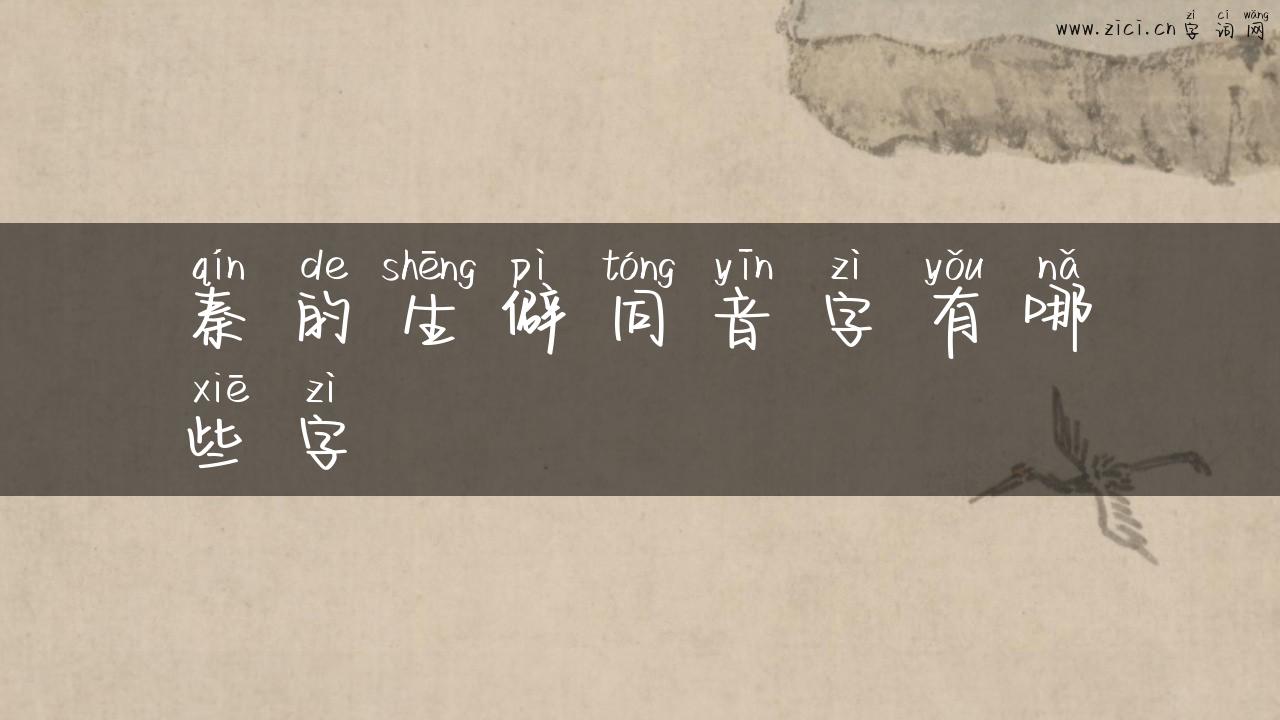 zì cí wǎng
www.zici.cn 字词网
qín de shēng pì tóng yīn zì yǒu nǎ
秦的生僻同音字有哪
xiē zì
些字